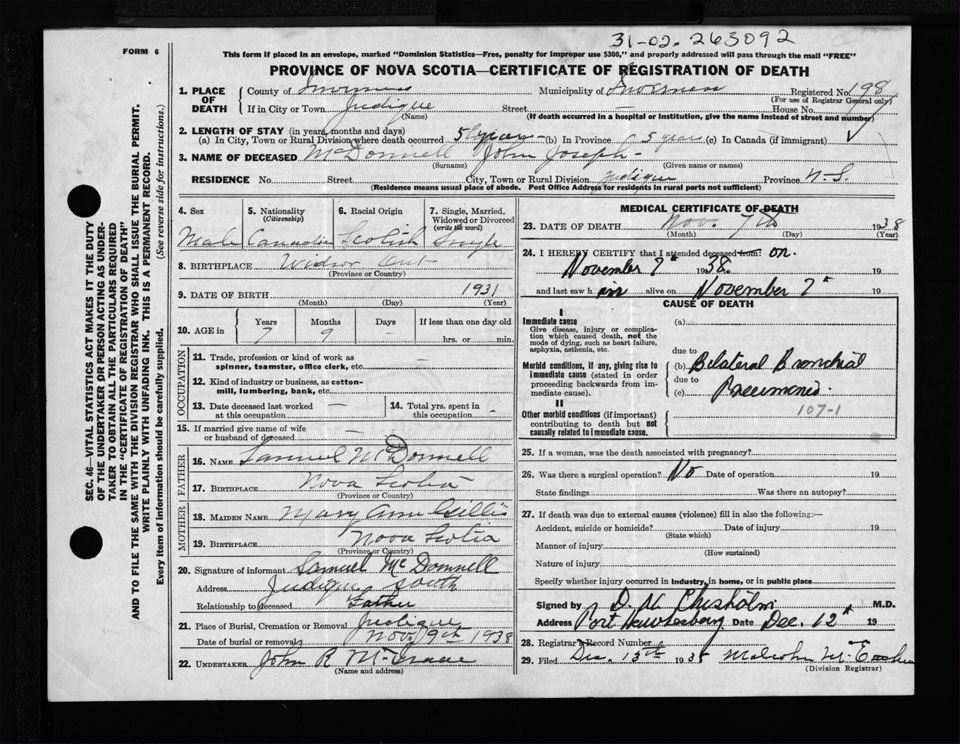 31-02. 263092
FORM 6
This form if placed in an envelope, marked "Dominion Statistics—Free, penalty for improper use $300," and properly addressed will pass through the mail "FREE"
PROVINCE OF NOVA SCOTIA—CERTIFICATE OF REGISTRATION OF DEATH
SEC. 46—VITAL STATISTICS ACT MAKES IT THE DUTY
OF THE UNDERTAKER OR PERSON ACTING AS UNDER-
TAKER TO OBTAIN ALL THE PARTICULARS REQUIRED
IN THE "CERTIFICATE OF REGISTRATION OF DEATH"
AND TO FILE THE SAME WITH THE DIVISION REGISTRAR WHO SHALL ISSUE THE BURIAL PERMIT.
WRITE PLAINLY WITH UNFADING INK. THIS IS A PERMANENT RECORD.
Every item of information should be carefully supplied. (See reverse side for instructions.)
1. PLACE OF DEATH County of Inverness Municipality of Inverness Registered No. 198
(For use of Registrar General only)
If in City or Town Judique Street — House No.
(Name) (If death occurred in a hospital or institution, give the name instead of street and number)
2. LENGTH OF STAY (in years, months and days)
(a) In City, Town or Rural Division where death occurred 5 years (b) In Province 5 years (c) In Canada (if immigrant)
3. NAME OF DECEASED McDonnell John Joseph
(Surname) (Given name or names)
RESIDENCE No. Street City, Town or Rural Division Judique Province N.S.
(Residence means usual place of abode. Post Office Address for residents in rural parts not sufficient)
4. Sex Male
5. Nationality (Citizenship) Canadian
6. Racial Origin Scotish
7. Single, Married, Widowed or Divorced (write the word) Single
8. BIRTHPLACE Widsor Ont
(Province or Country)
9. DATE OF BIRTH 1931
(Month) (Day) (Year)
10. AGE in Years 7 Months 9 Days If less than one day old hrs. or min.
OCCUPATION
11. Trade, profession or kind of work as spinner, teamster, office clerk, etc. —
12. Kind of industry or business, as cotton-mill, lumbering, bank, etc. —
13. Date deceased last worked at this occupation —
14. Total yrs. spent in this occupation -
15. If married give name of wife or husband of deceased —
FATHER
16. NAME Samuel McDonnell
17. BIRTHPLACE Nova Scotia
(Province or Country)
MOTHER
18. MAIDEN NAME Mary Ann Gillis
19. BIRTHPLACE Nova Scotia
(Province or Country)
20. Signature of informant Samuel McDonnell
Address Judique South
Relationship to deceased Father
21. Place of Burial, Cremation or Removal Judique
Date of burial or removal Nov 9th 1938
22. UNDERTAKER John R
(Name and address)
MEDICAL CERTIFICATE OF DEATH
23. DATE OF DEATH Nov. 7th 1938
(Month) (Day) (Year)
24. I HEREBY CERTIFY that I attended deceased from: on
November 7th 1938. 19
and last saw him alive on November 7th 19
CAUSE OF DEATH
I
Immediate cause (a)
Give disease, injury or complication which caused death, not the mode of dying, such as heart failure, asphyxia, asthenia, etc.
due to
Morbid conditions, if any, giving rise to immediate cause (stated in order proceeding backwards from immediate cause). (b) Bilateral Bronchial
due to
(c) Pneumonia.
107-1
II
Other morbid conditions (if important) contributing to death but not causally related to immediate cause.
25. If a woman, was the death associated with pregnancy?
26. Was there a surgical operation? No Date of operation 19
State findings Was there an autopsy?
27. If death was due to external causes (violence) fill in also the following:—
Accident, suicide or homicide? Date of injury 19
(State which)
Manner of injury
(How sustained)
Nature of injury
Specify whether injury occurred in industry, in home, or in public place
Signed by Chisholm M.D.
Address Port Hawkesbury Date Dec. 12th 19
28. Registrar's Record Number
29. Filed Dec. 13th 1938 Malcolm
(Division Registrar)